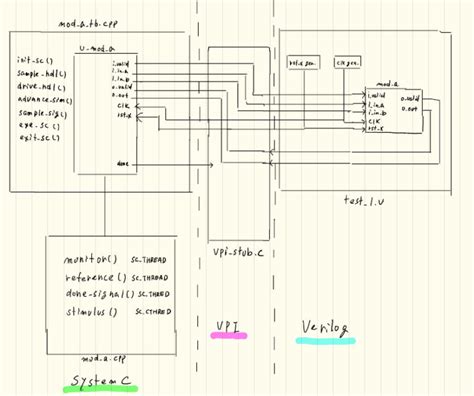 mod_a_tb.cpp
u_mod_a
init_sc()
sample_hdl()
drive_hdl()
advance_sim()
sample_sig()
exe_sc()
exit_sc()
i_valid
i_in_a
i_in_b
o_valid
o_out
clk
rst_x
done
vpi_stub.c
rst_x gen.
clk gen.
mod_a
i_valid
i_in_a
i_in_b
clk
rst_x
o_valid
o_out
test_1.v
monitor() SC_THREAD
reference() SC_THREAD
done_signal() SC_THREAD
stimulus() SC_CTHREAD
mod_a.cpp
SystemC
VPI
Verilog